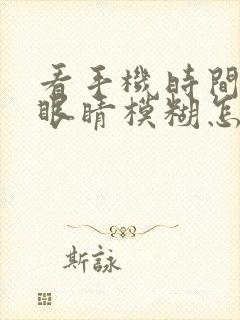 看手機時間
眼睛模糊怎
斯詠